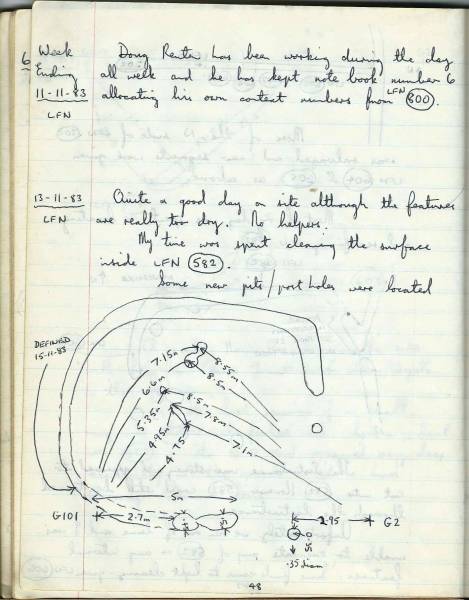 6 Week Ending 11-11-83 LFN
Doug Renter has been working during the day
all week and he has kept note book number 6
allocating his own context numbers from LFN 800.
13-11-83 LFN
Quite a good day on site although the features
are really too dry. No helpers.
My time was spent cleaning the surface
inside LFN 582.
Some new pits/post holes were located
DEFINED
15-11-83
7.15m
8.55m
6.6m
8.5m
5.35m
8.5m
4.95m
7.8m
4.75
7.1m
5m
G101
2.7m
2.95
G2
.35 diam
48